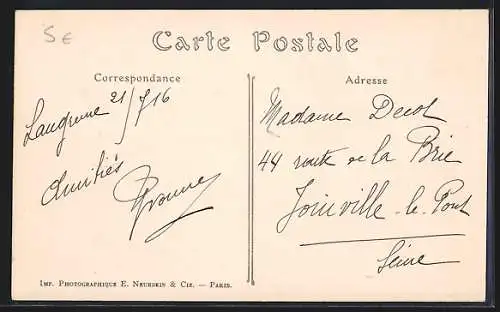 5€
Carte Postale
Correspondance
Adresse
Langrune 21/7/16
Amitiés
Yvonne
Madame Decol
44 route de la Brie
Joinville-le-Pont
Seine
Imp. Photographique E. Neurdein & Cie. — Paris.